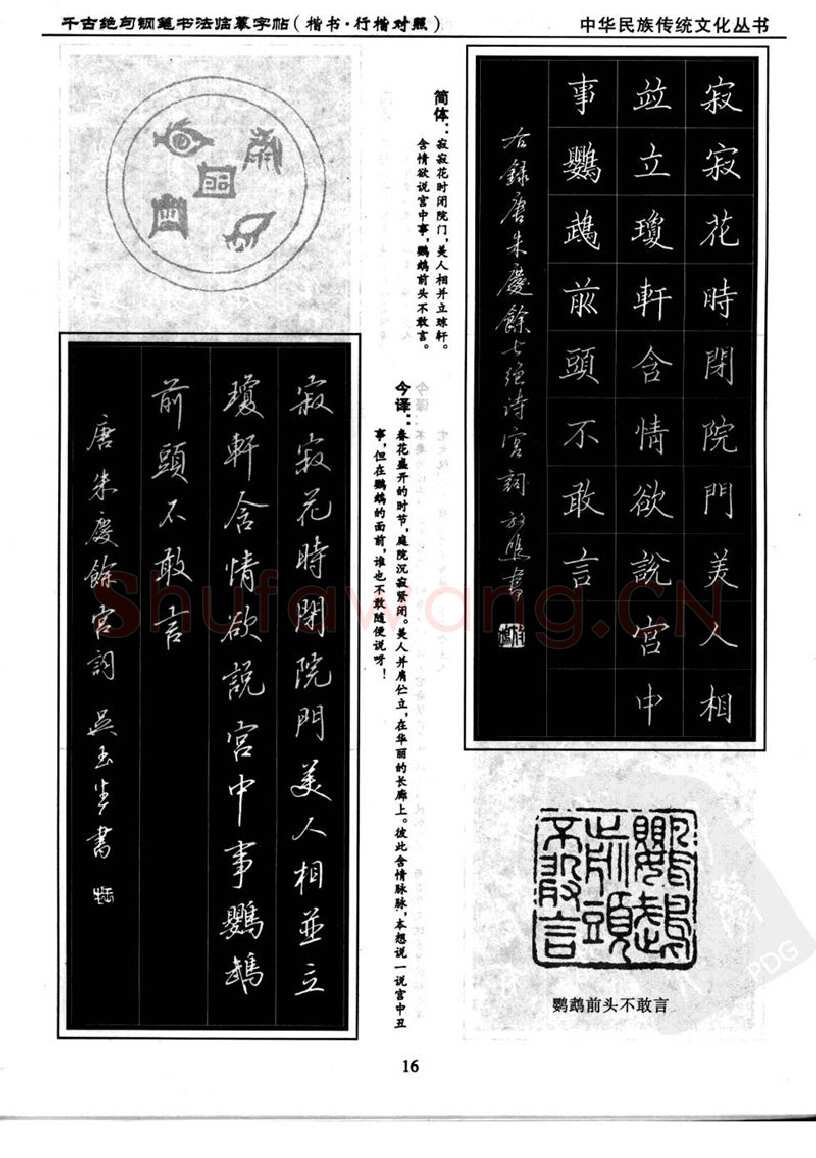 千古绝句钢笔书法临摹字帖(楷书·行楷对照)
中华民族传统文化丛书
寂寂花時閉院門美人相
竝立瓊軒含情欲說宮中
事鸚鵡前頭不敢言
右錄唐朱慶餘七絕诗宮詞 書
简体:寂寂花时闭院门,美人相并立琼轩。
含情欲说宫中事,鹦鹉前头不敢言。
今译:春花盛开的时节,庭院沉寂紧闭。美人并肩伫立,在华丽的长廊上。彼此含情脉脉,本想说一说宫中丑
事,但在鹦鹉的面前,谁也不敢随便说呀!
寂寂花時閉院門美人相並立
瓊軒含情欲說宮中事鸚鵡
前頭不敢言
唐朱慶餘宮詞 吴玉生書
鸚鵡
前頭
不敢言
鹦鹉前头不敢言
16
Shufawang.CN
PDG